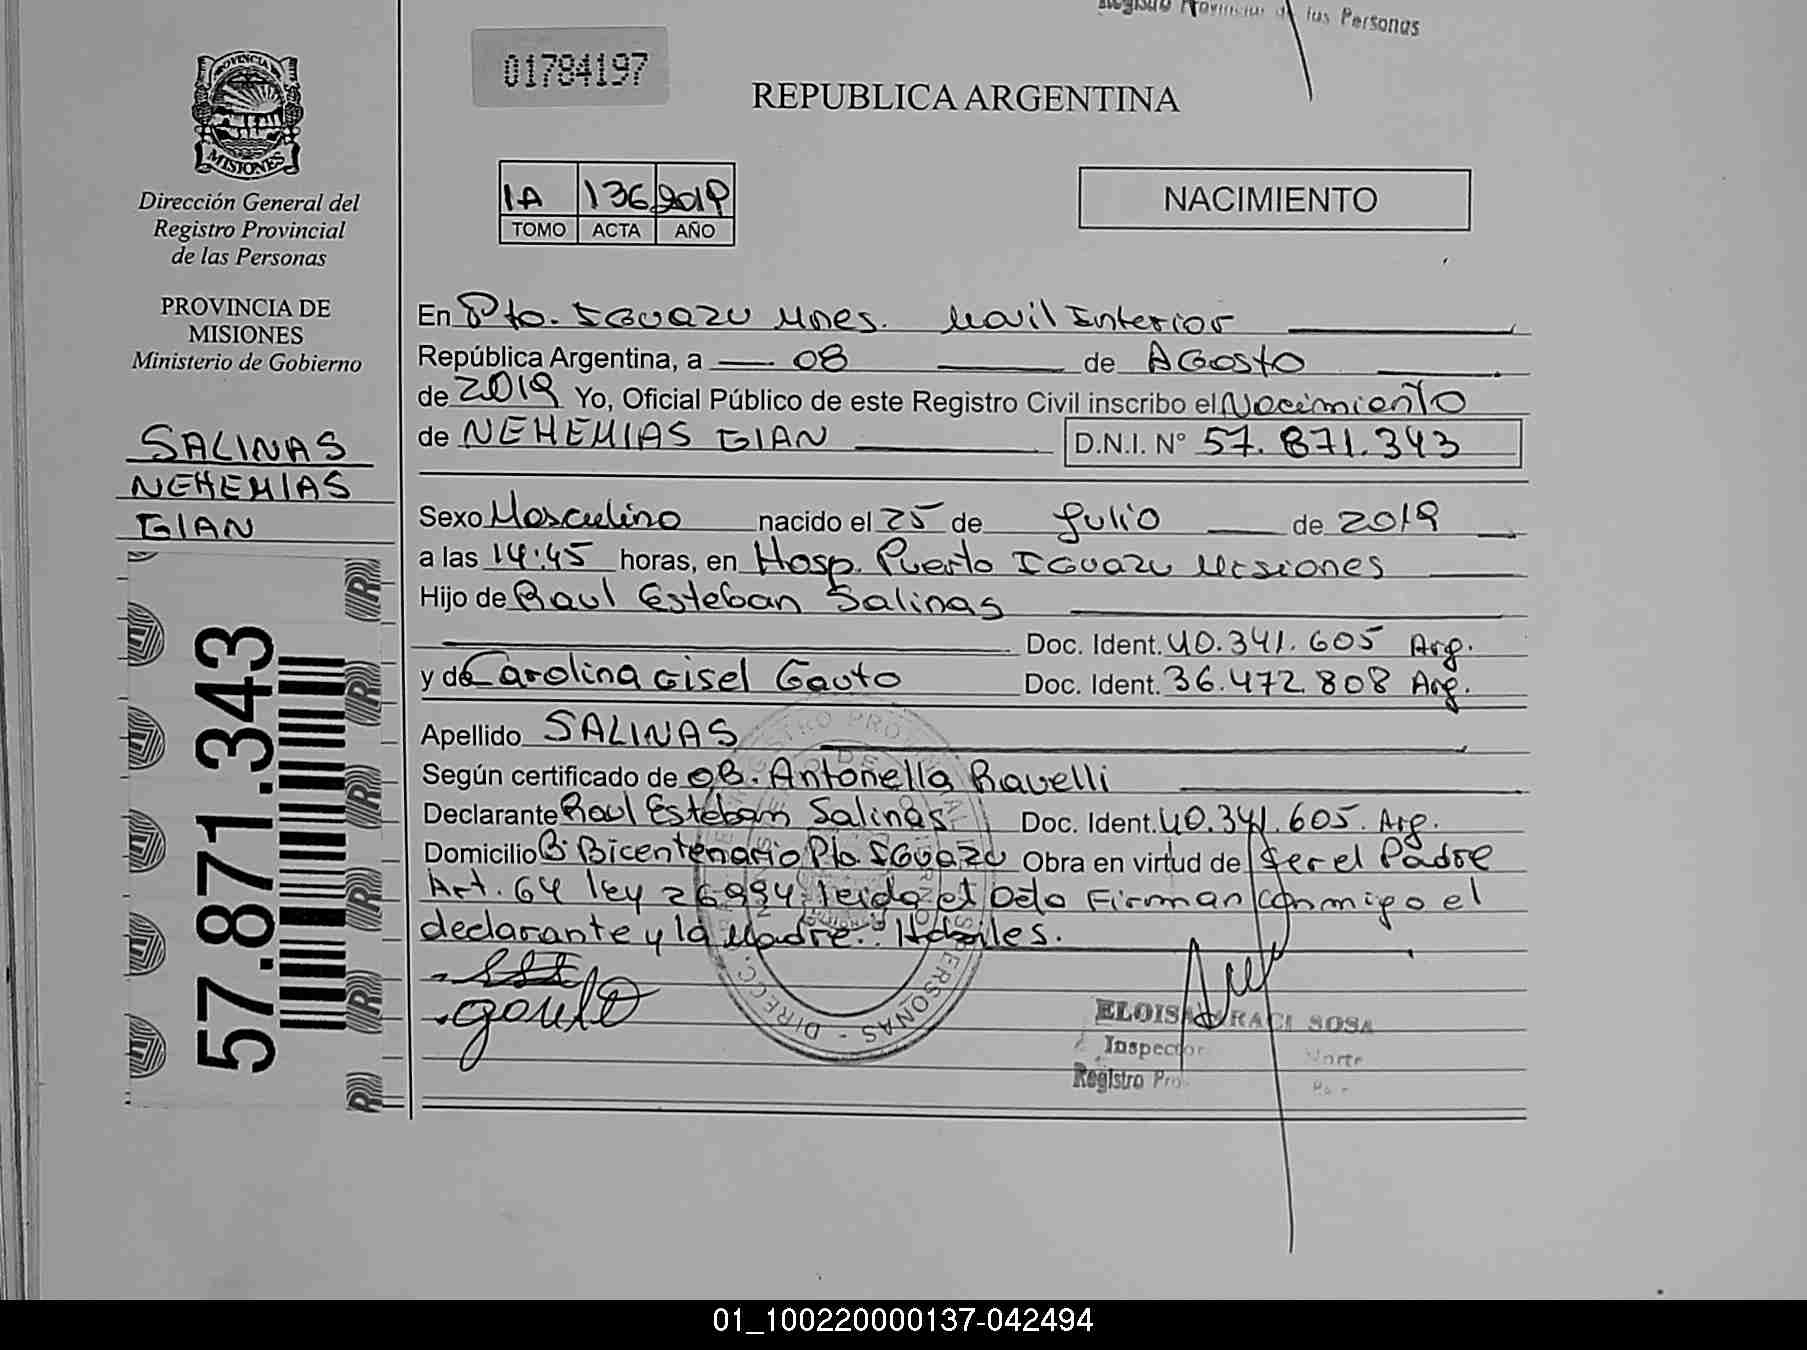 Registro Provincial de las Personas
01784197
REPUBLICA ARGENTINA
PROVINCIA DE
MISIONES
Dirección General del
Registro Provincial
de las Personas
PROVINCIA DE
MISIONES
Ministerio de Gobierno
SALINAS
NEHEMIAS
GIAN
57.871.343
1A 136 2019
TOMO ACTA AÑO
NACIMIENTO
En Pto. IGUAZU Mnes. Movil Interior
República Argentina, a 08 de AGosto
de 2019 Yo, Oficial Público de este Registro Civil inscribo el Nacimiento
de NEHEMIAS GIAN D.N.I. N° 57.871.343
Sexo Masculino nacido el 25 de Julio de 2019
a las 14:45 horas, en Hosp. Puerto IGUAZU Misiones
Hijo de Raul Esteban Salinas
Doc. Ident. 40.341.605 Arg.
y de Carolina Gisel Gauto Doc. Ident. 36.472.808 Arg.
Apellido SALINAS
Según certificado de OB. Antonella Ravelli
Declarante Raul Esteban Salinas Doc. Ident. 40.341.605. Arg.
Domicilio B: Bicentenario Pto. IGUAZU Obra en virtud de ser el Padre
Art. 64 ley 26994 leida el Acta Firman conmigo el
declarante y la Madre.. Habiles.
Gauto
ELOISA IRACI SOSA
Inspector Norte
Registro Pro
DIRECC PERSONAS
01_100220000137-042494